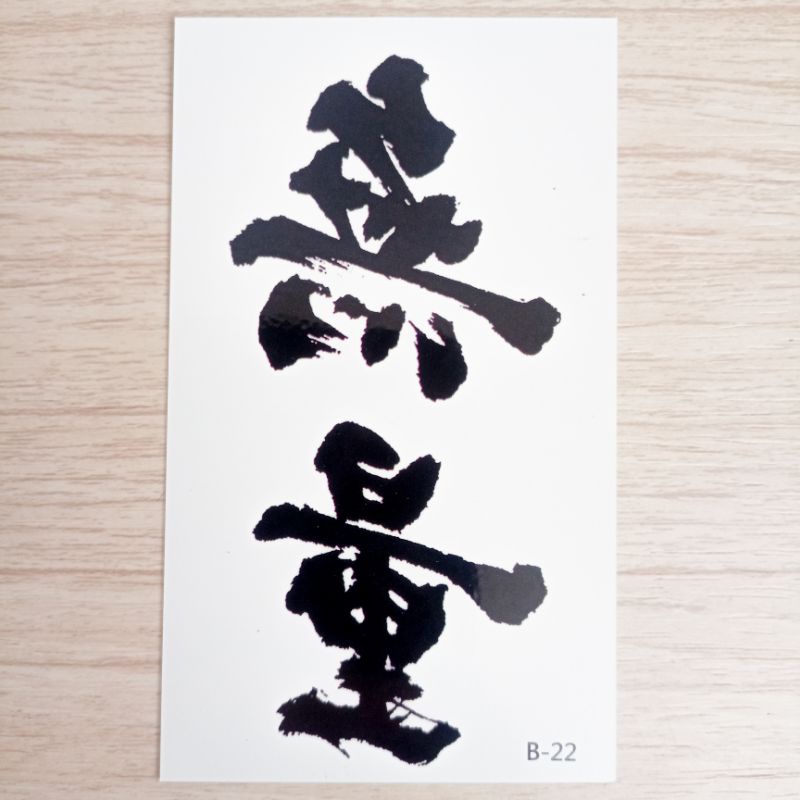 無量
B-22